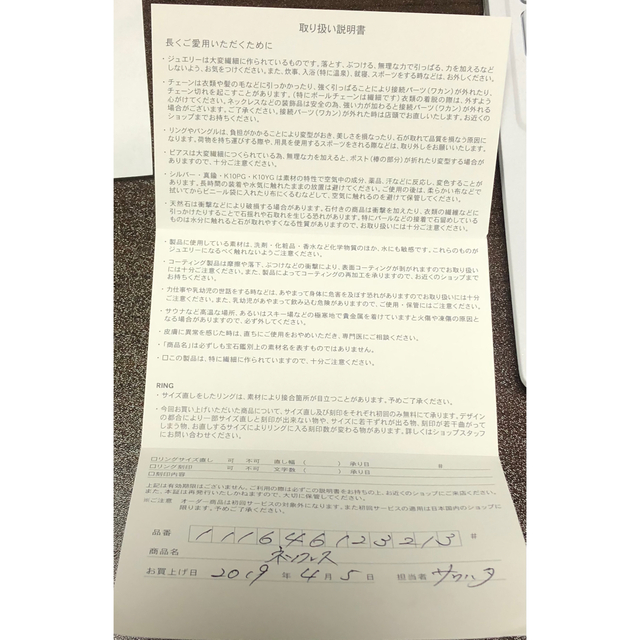 取り扱い説明書
長くご愛用いただくために
・ジュエリーは大変繊細に作られているものです。落とす、ぶつける、無理な力で引っぱる、力を加えるなど
しないよう、お気をつけください。また、炊事、入浴(特に温泉)、就寝、スポーツをする時などは、お外しください。
・チェーンは衣類や髪の毛などに引っかかったり、強く引っぱることにより接続パーツ(ワカン)が外れたり、
チェーン切れを起こすことがあります。(特にボールチェーンは繊細です)衣類の着脱の際は、外すよう
心がけてください。ネックレスなどの装飾品は安全の為、強い力が加わると接続パーツ(ワカン)が外れる
場合がございます。ご了承ください。接続パーツ(ワカン)が外れた時は店頭でお直しいたします。お近くの
ショップまでお持ちください。
・リングやバングルは、負担がかかることにより変型がおき、美しさを損なったり、石が取れて品質を損なう原因に
なります。荷物を持ち運びする際や、用具を使用するスポーツをされる際などは、取り外しをお願いいたします。
・ピアスは大変繊細につくられている為、無理な力を加えると、ポスト(棒の部分)が折れたり変型する場合が
ありますので、十分ご注意ください。
・シルバー・真鍮・K10PG・K10YGは素材の特性で空気中の成分、薬品、汗などに反応し、変色することが
あります。長時間の装着や水気に触れたままの放置は避けてください。ご使用の後は、柔らかい布などで
拭いてからビニール袋に入れたり布にくるむなどして、空気に触れるのを避けて保管してください。
・天然石は衝撃などにより破損する場合があります。石付きの商品は衝撃を加えたり、衣類の繊維などに
引っかけたりすることで石揺れや石取れを生じる恐れがあります。特にパールなどの接着で石留めしている
ものは水分に触れると石が取れやすくなる性質がありますので、お取り扱いには十分ご注意ください。
・製品に使用している素材は、洗剤・化粧品・香水など化学物質のほか、水にも敏感です。これらのものが
ジュエリーになるべく触れないようご注意ください。
・コーティング製品は摩擦や落下、ぶつけなどの衝撃により、表面コーティングが剥がれますのでお取り扱い
には十分ご注意ください。また、製品によってコーティングの再加工を承りますので、お近くのショップまで
お持ちください。
・力仕事や乳幼児の世話をする時などは、あやまって身体に危害を及ぼす恐れがありますのでお取り扱いには十分
ご注意ください。また、乳幼児があやまって飲み込む危険がありますので、ご使用・保管にはご注意ください。
・サウナなど高温な場所、あるいはスキー場などの極寒地で貴金属を着けていますと火傷や凍傷の原因と
なる場合がありますので、必ず外してください。
・皮膚に異常を感じた時は、直ちにご使用をおやめいただき、専門医にご相談ください。
・「商品名」は必ずしも宝石鑑別上の素材名を表すものではありません。
・□この製品は、特に繊細に作られていますので、十分ご注意ください。
RING
・サイズ直しをしたリングは、素材により接合箇所が目立つことがあります。予めご了承ください。
・今回お買い上げいただいた商品について、サイズ直し及び刻印をそれぞれ初回のみ無料にて承ります。デザイン
の都合により一部サイズ直しと刻印が出来ない物や、サイズに若干ずれが出る物、刻印が若干曲がって
しまう物、お直しするサイズによりリングに入る刻印数が変わる物があります。詳しくはショップスタッフ
にお問い合わせください。
□リングサイズ直し 可 不可 直し幅 ( ) 承り日
□リング刻印 可 不可 文字数 ( ) 承り日
□刻印内容
上記は有効期限はございません。ご利用の際は必ずこの説明書をお持ちの上、お近くのショップにご来店ください。
また、本証は再発行いたしかねますので、大切に保管してください。
※ご注意 オーダー商品は初回サービスの対象外になります。また初回サービスの適用は日本国内のショップに
限ります。予めご了承ください。
品番 111646123213
商品名 ネックレス
お買上げ日 2019年4月5日 担当者